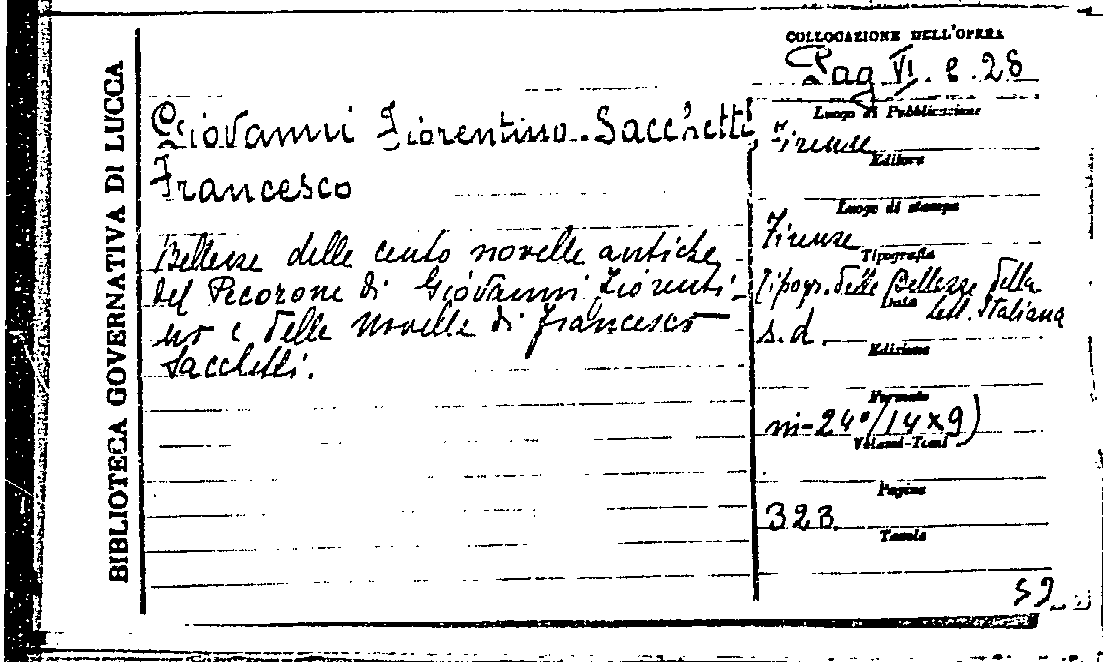 BIBLIOTECA GOVERNATIVA DI LUCCA
Giovanni Fiorentino - Sacchetti
Francesco
Bellezze delle cento novelle antiche
del Pecorone di Giovanni Fiorenti-
no e delle Novelle di Francesco
Sacchetti.
COLLOCAZIONE DELL'OPERA
Pag VI. e. 28
Luogo di Pubblicazione
Firenze
Editore
Luogo di stampa
Firenze
Tipografia
Tipogr. delle Bellezze della
Data
Lett. Italiana
s.d.
Edizione
Formato
in-24° (14x9)
Volumi-Tomi
Pagine
323
Tavole